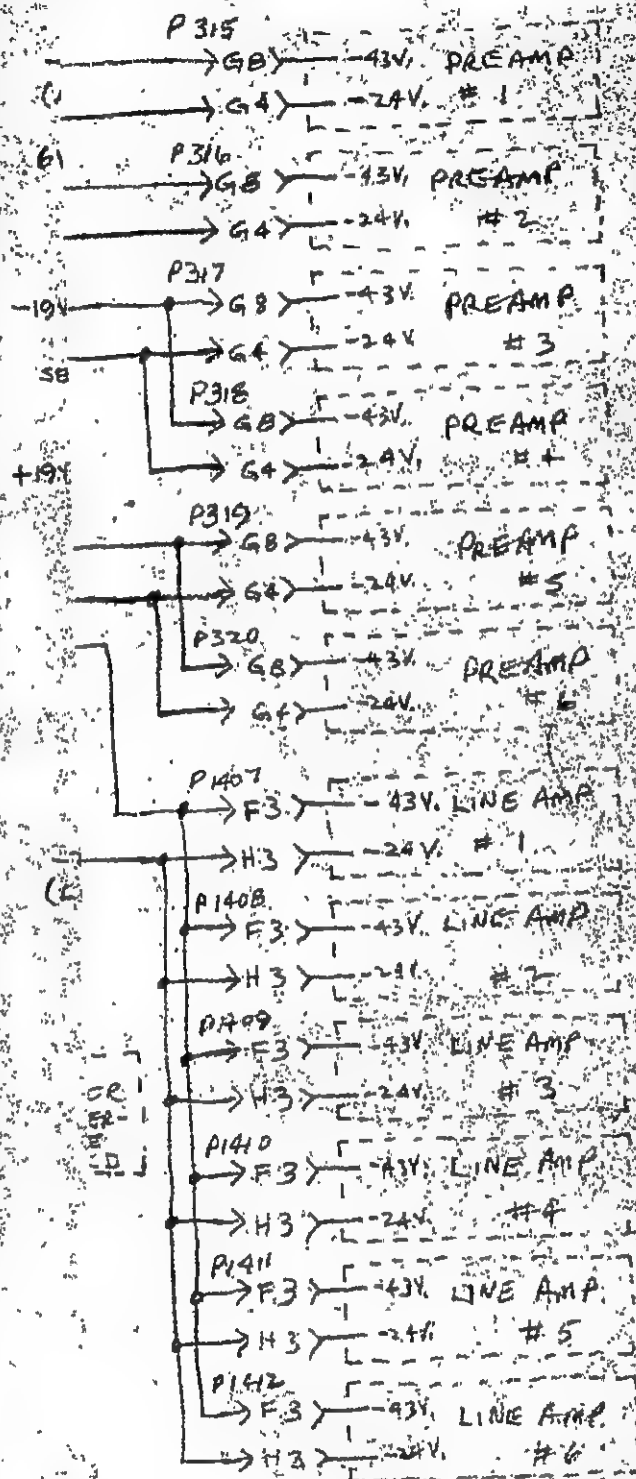 P315
G8 -43V. PREAMP
G4 -24V. # 1
61 P316
G8 -43V. PREAMP
G4 -24V. # 2
P317
-19V G8 -43V. PREAMP
G4 -24V # 3
P318
G8 -43V. PREAMP
G4 -24V. # 4
+19V
P319
G8 -43V. PREAMP
G4 -24V. # 5
P320
G8 -43V. PREAMP
G4 -24V. # 6
P1407
F3 -43V. LINE AMP
H3 -24V. # 1
P1408
F3 -43V. LINE AMP
H3 -24V. # 2
P1409
F3 -43V. LINE AMP
H3 -24V. # 3
P1410
F3 -43V. LINE AMP
H3 -24V. # 4
P1411
F3 -43V. LINE AMP.
H3 -24V. # 5
P1412
F3 -43V. LINE AMP.
H3 -24V. # 6